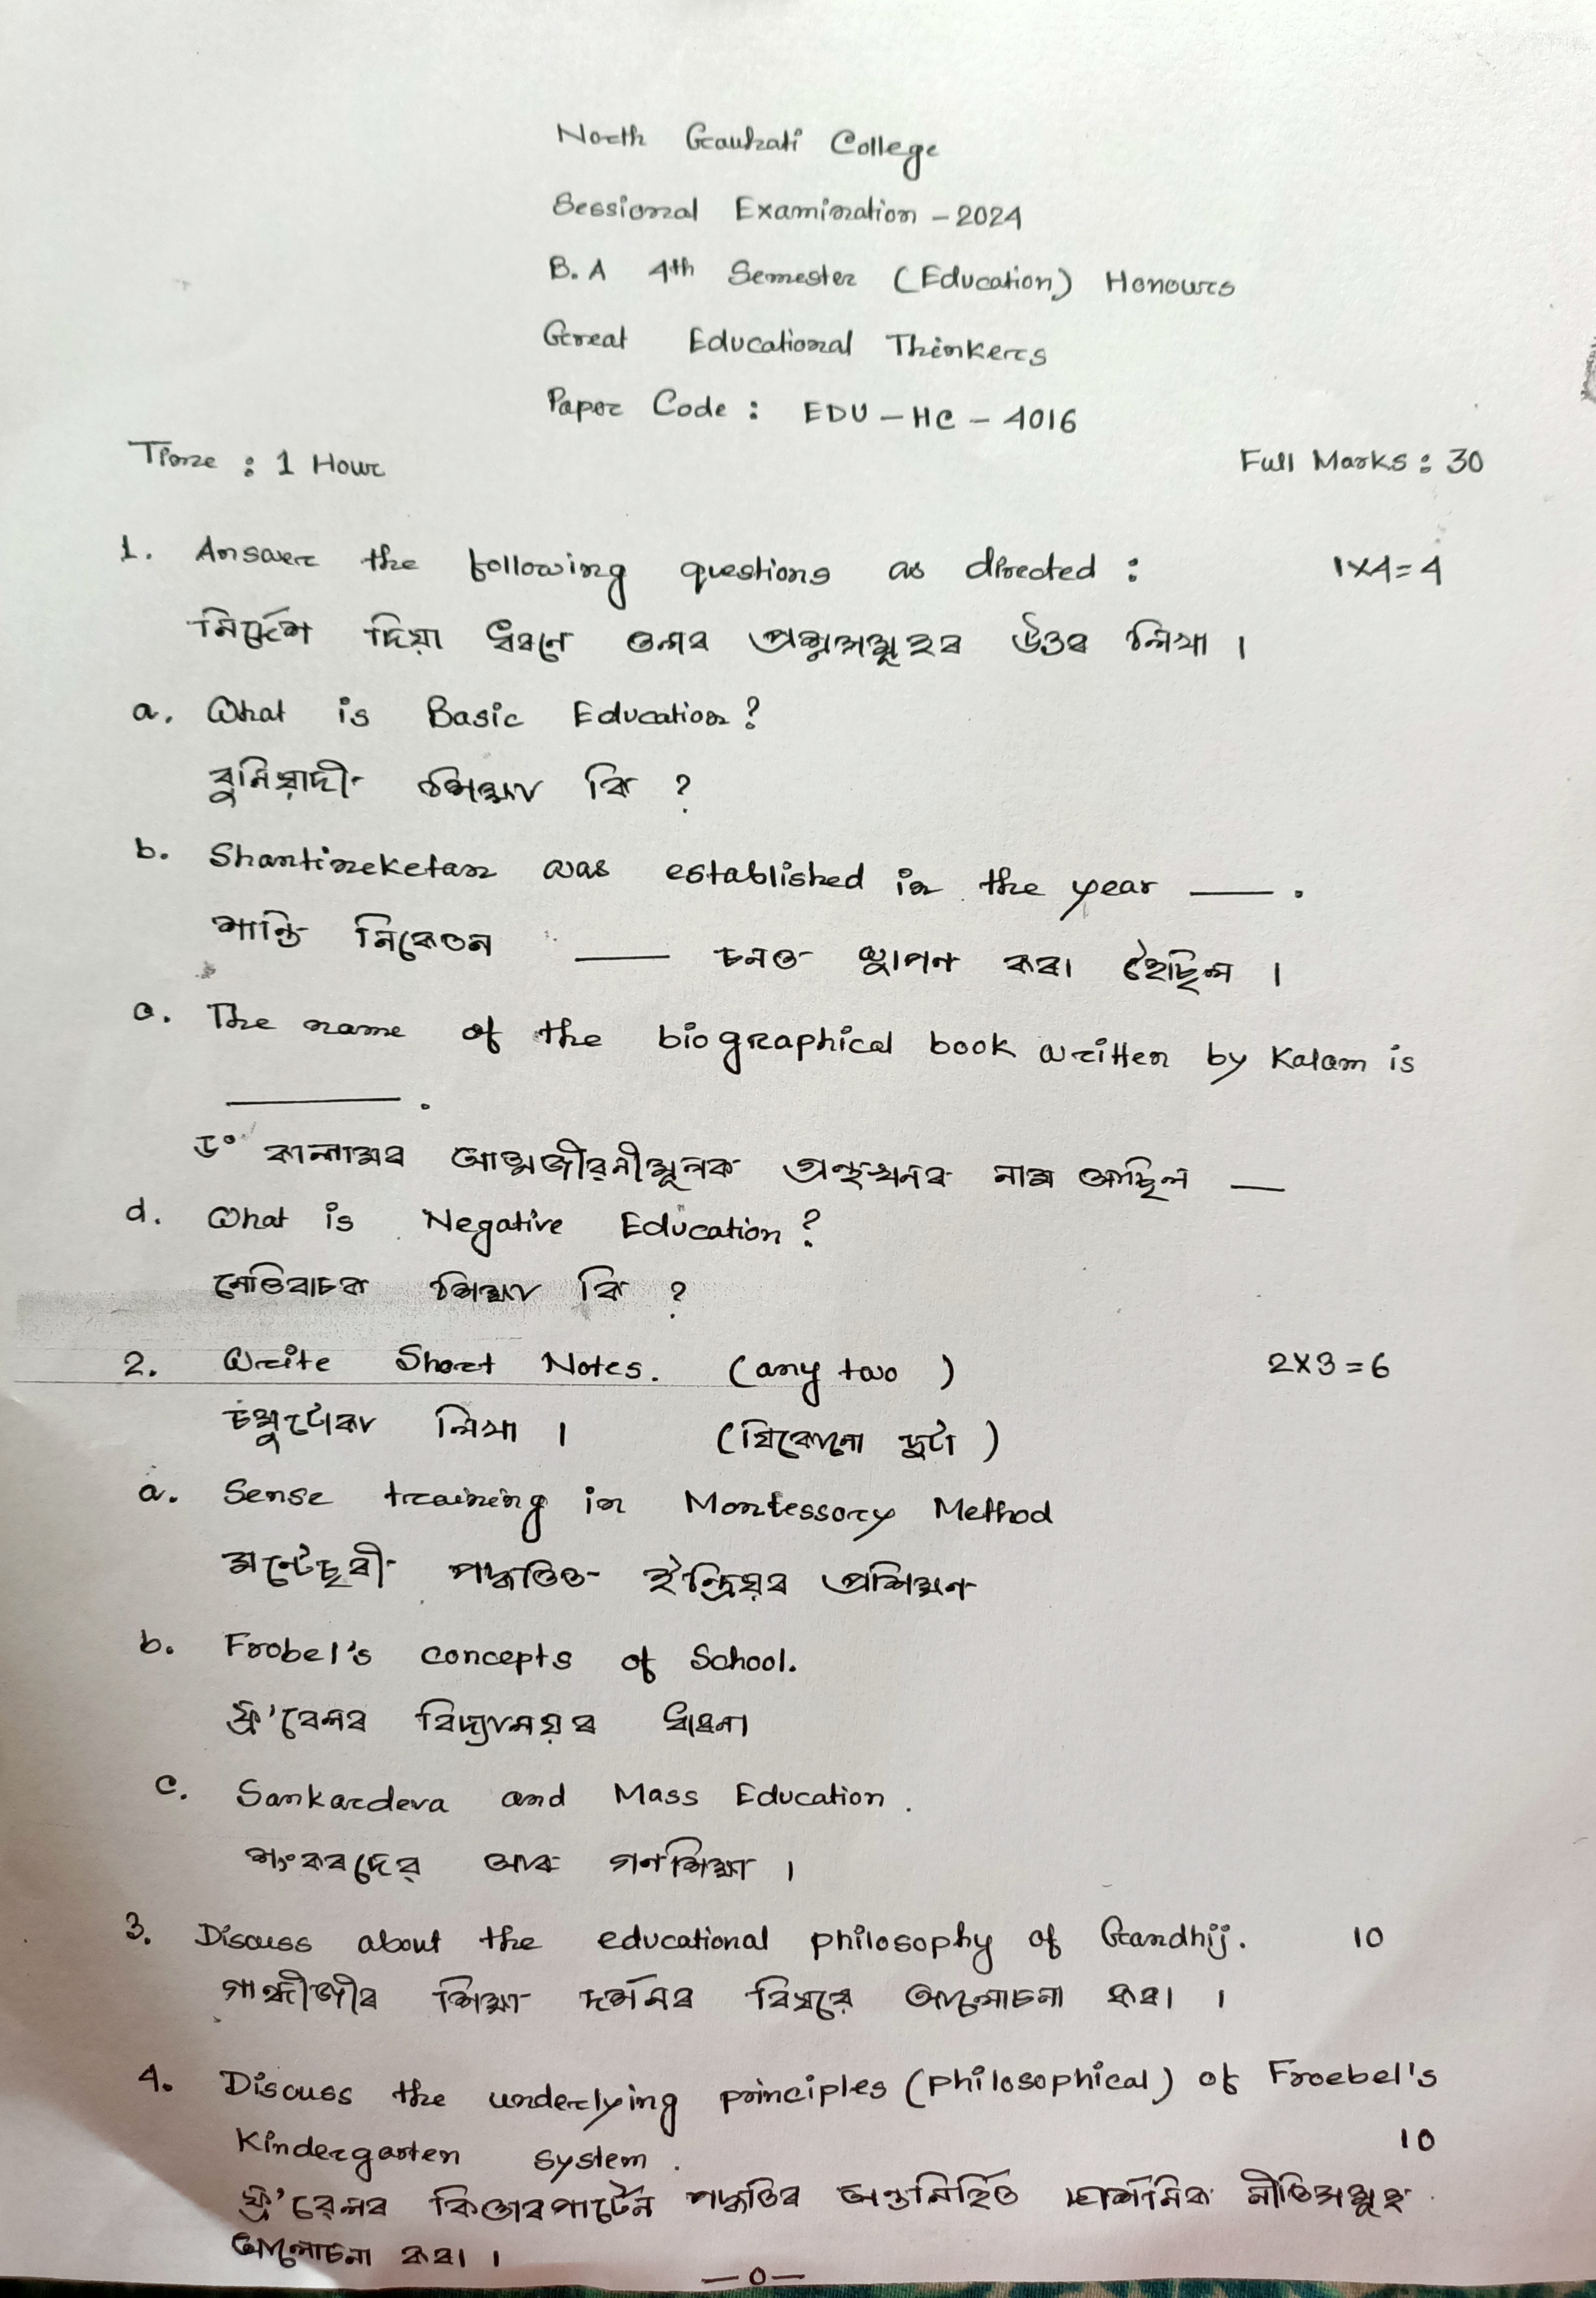 North Gauhati College
Sessional Examination - 2024
B.A 4th Semester (Education) Honours
Great Educational Thinkers
Paper Code : EDU - HC - 4016
Time : 1 Hour
Full Marks : 30
1. Answer the following questions as directed : 1X4=4
নিৰ্দেশ দিয়া ধৰণে তলৰ প্ৰশ্নসমূহৰ উত্তৰ লিখা ।
a. What is Basic Education?
বুনিয়াদী শিক্ষা কি ?
b. Shantineketan was established in the year ___ .
শান্তি নিকেতন ___ চনত স্থাপন কৰা হৈছিল ।
c. The name of the biographical book written by Kalam is
______ .
ড° কালামৰ আত্মজীৱনীমূলক গ্ৰন্থখনৰ নাম আছিল __
d. What is Negative Education?
নেতিবাচক শিক্ষা কি ?
2. Write Short Notes. (any two) 2X3=6
চমুটোকা লিখা । (যিকোনো দুটা)
a. Sense training in Montessory Method
মন্টেছৰী পদ্ধতিত ইন্দ্ৰিয়ৰ প্ৰশিক্ষণ
b. Frobel's concepts of School.
ফ্ৰ'বেলৰ বিদ্যালয়ৰ ধাৰণা
c. Sankardeva and Mass Education.
শংকৰদেৱ আৰু গণশিক্ষা ।
3. Discuss about the educational philosophy of Gandhij. 10
গান্ধীজীৰ শিক্ষা দৰ্শনৰ বিষয়ে আলোচনা কৰা ।
4. Discuss the underlying principles (philosophical) of Froebel's
Kindergarten system. 10
ফ্ৰ'ৱেলৰ কিণ্ডাৰগাৰ্টেন পদ্ধতিৰ অন্তৰ্নিহিত দাৰ্শনিক নীতিসমূহ
আলোচনা কৰা ।
—0—